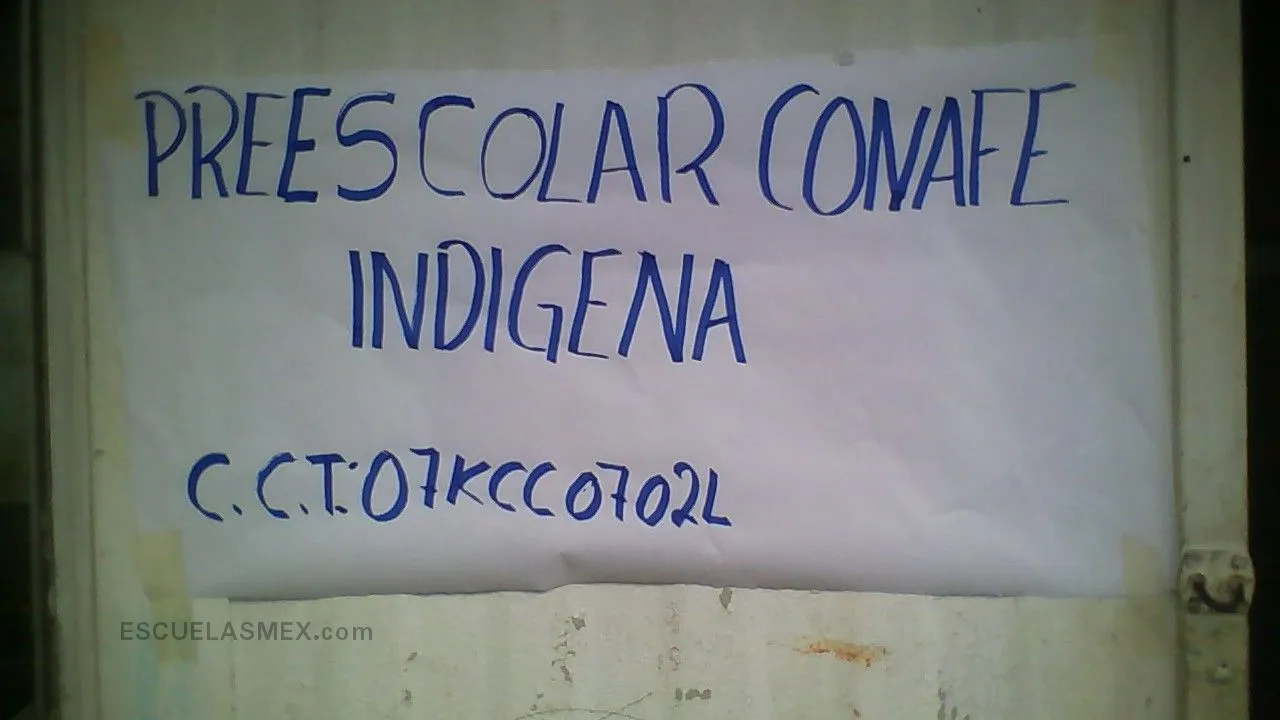 PREESCOLAR CONAFE
INDIGENA
C.C.T:07KCC0702L
ESCUELASMEX.com